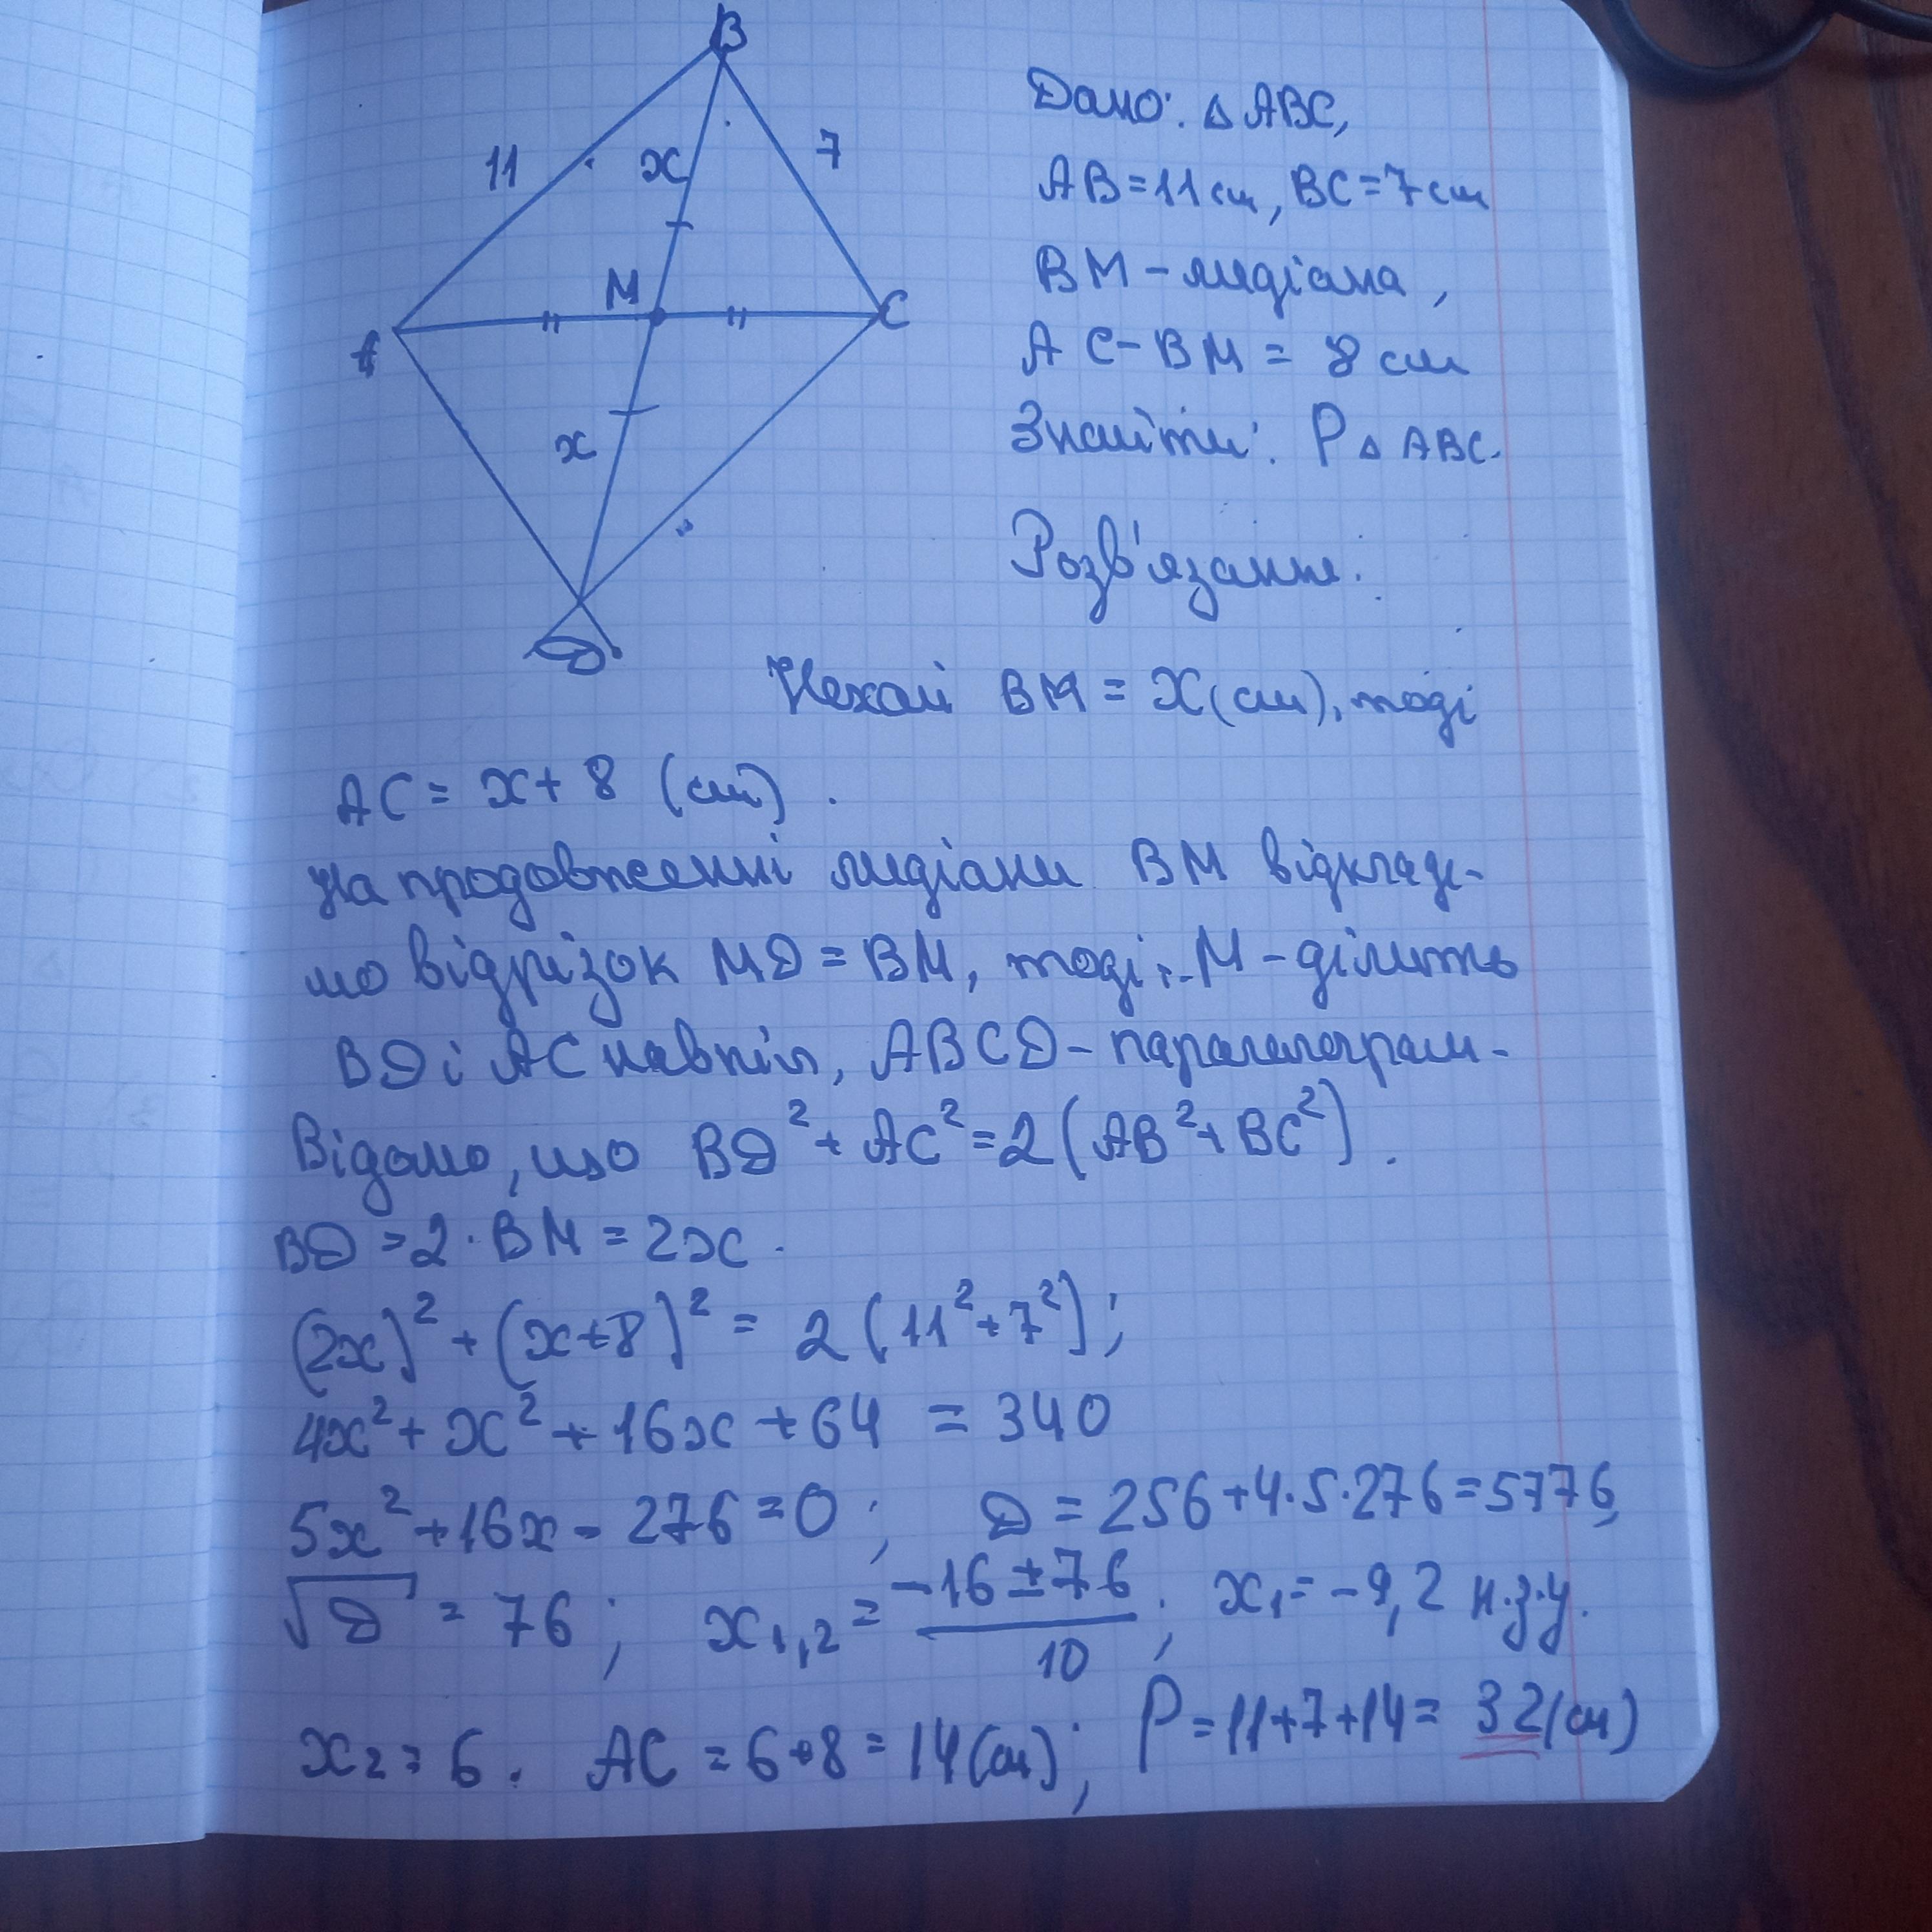 B
11
x
7
M
A
C
x
D
Дано: △ ABC,
AB = 11 см, BC = 7 см
BM – медіана,
AC – BM = 8 см
Знайти: P △ ABC.
Розв'язання:
Нехай BM = x (см), тоді
AC = x + 8 (см).
На продовженні медіани BM відкладе-
мо відрізок MD = BM, тоді т. M – ділить
BD і AC навпіл, ABCD – паралелограм.
Відомо, що BD² + AC² = 2(AB² + BC²).
BD = 2 · BM = 2x.
(2x)² + (x + 8)² = 2(11² + 7²);
4x² + x² + 16x + 64 = 340
5x² + 16x – 276 = 0; D = 256 + 4·5·276 = 5776,
√D = 76; x₁,₂ = (–16 ± 76)/10; x₁ = –9,2 н.з.у.
x₂ = 6. AC = 6 + 8 = 14 (см); P = 11 + 7 + 14 = 32 (см)